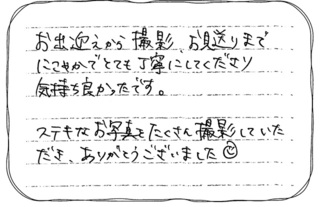 お出迎えから撮影、お見送りまで
にこやかでとても丁寧にしてくださり
気持ち良かったです。
ステキなお写真をたくさん撮影していた
だき、ありがとうございました☺